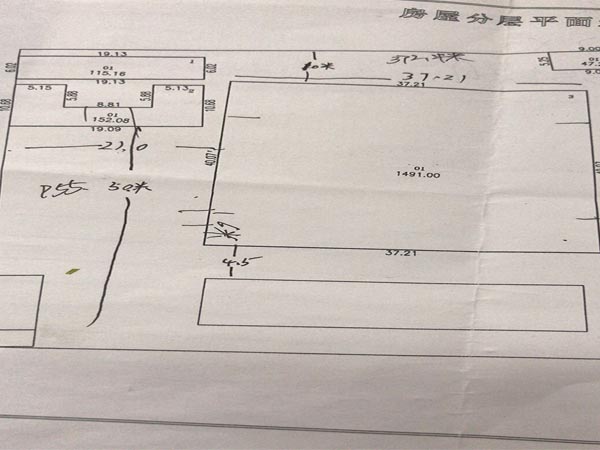 房屋分层平面
19.13
01
115.16
6.02
6.02
1
19.13
5.15
5.88
8.81
5.88
5.13
2
10.68
10.68
01
152.08
19.09
21.0
50米
10米
37.21
37.21
3
40.07
01
1491.00
37.21
4.5
9.09
01
47.2
5.15
9.0